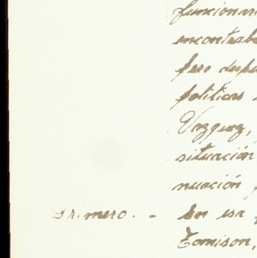 funcionari
encontrab
pero despu
politicas
Vazquez,
situación
nuación
Primero. - En esa
Comison,